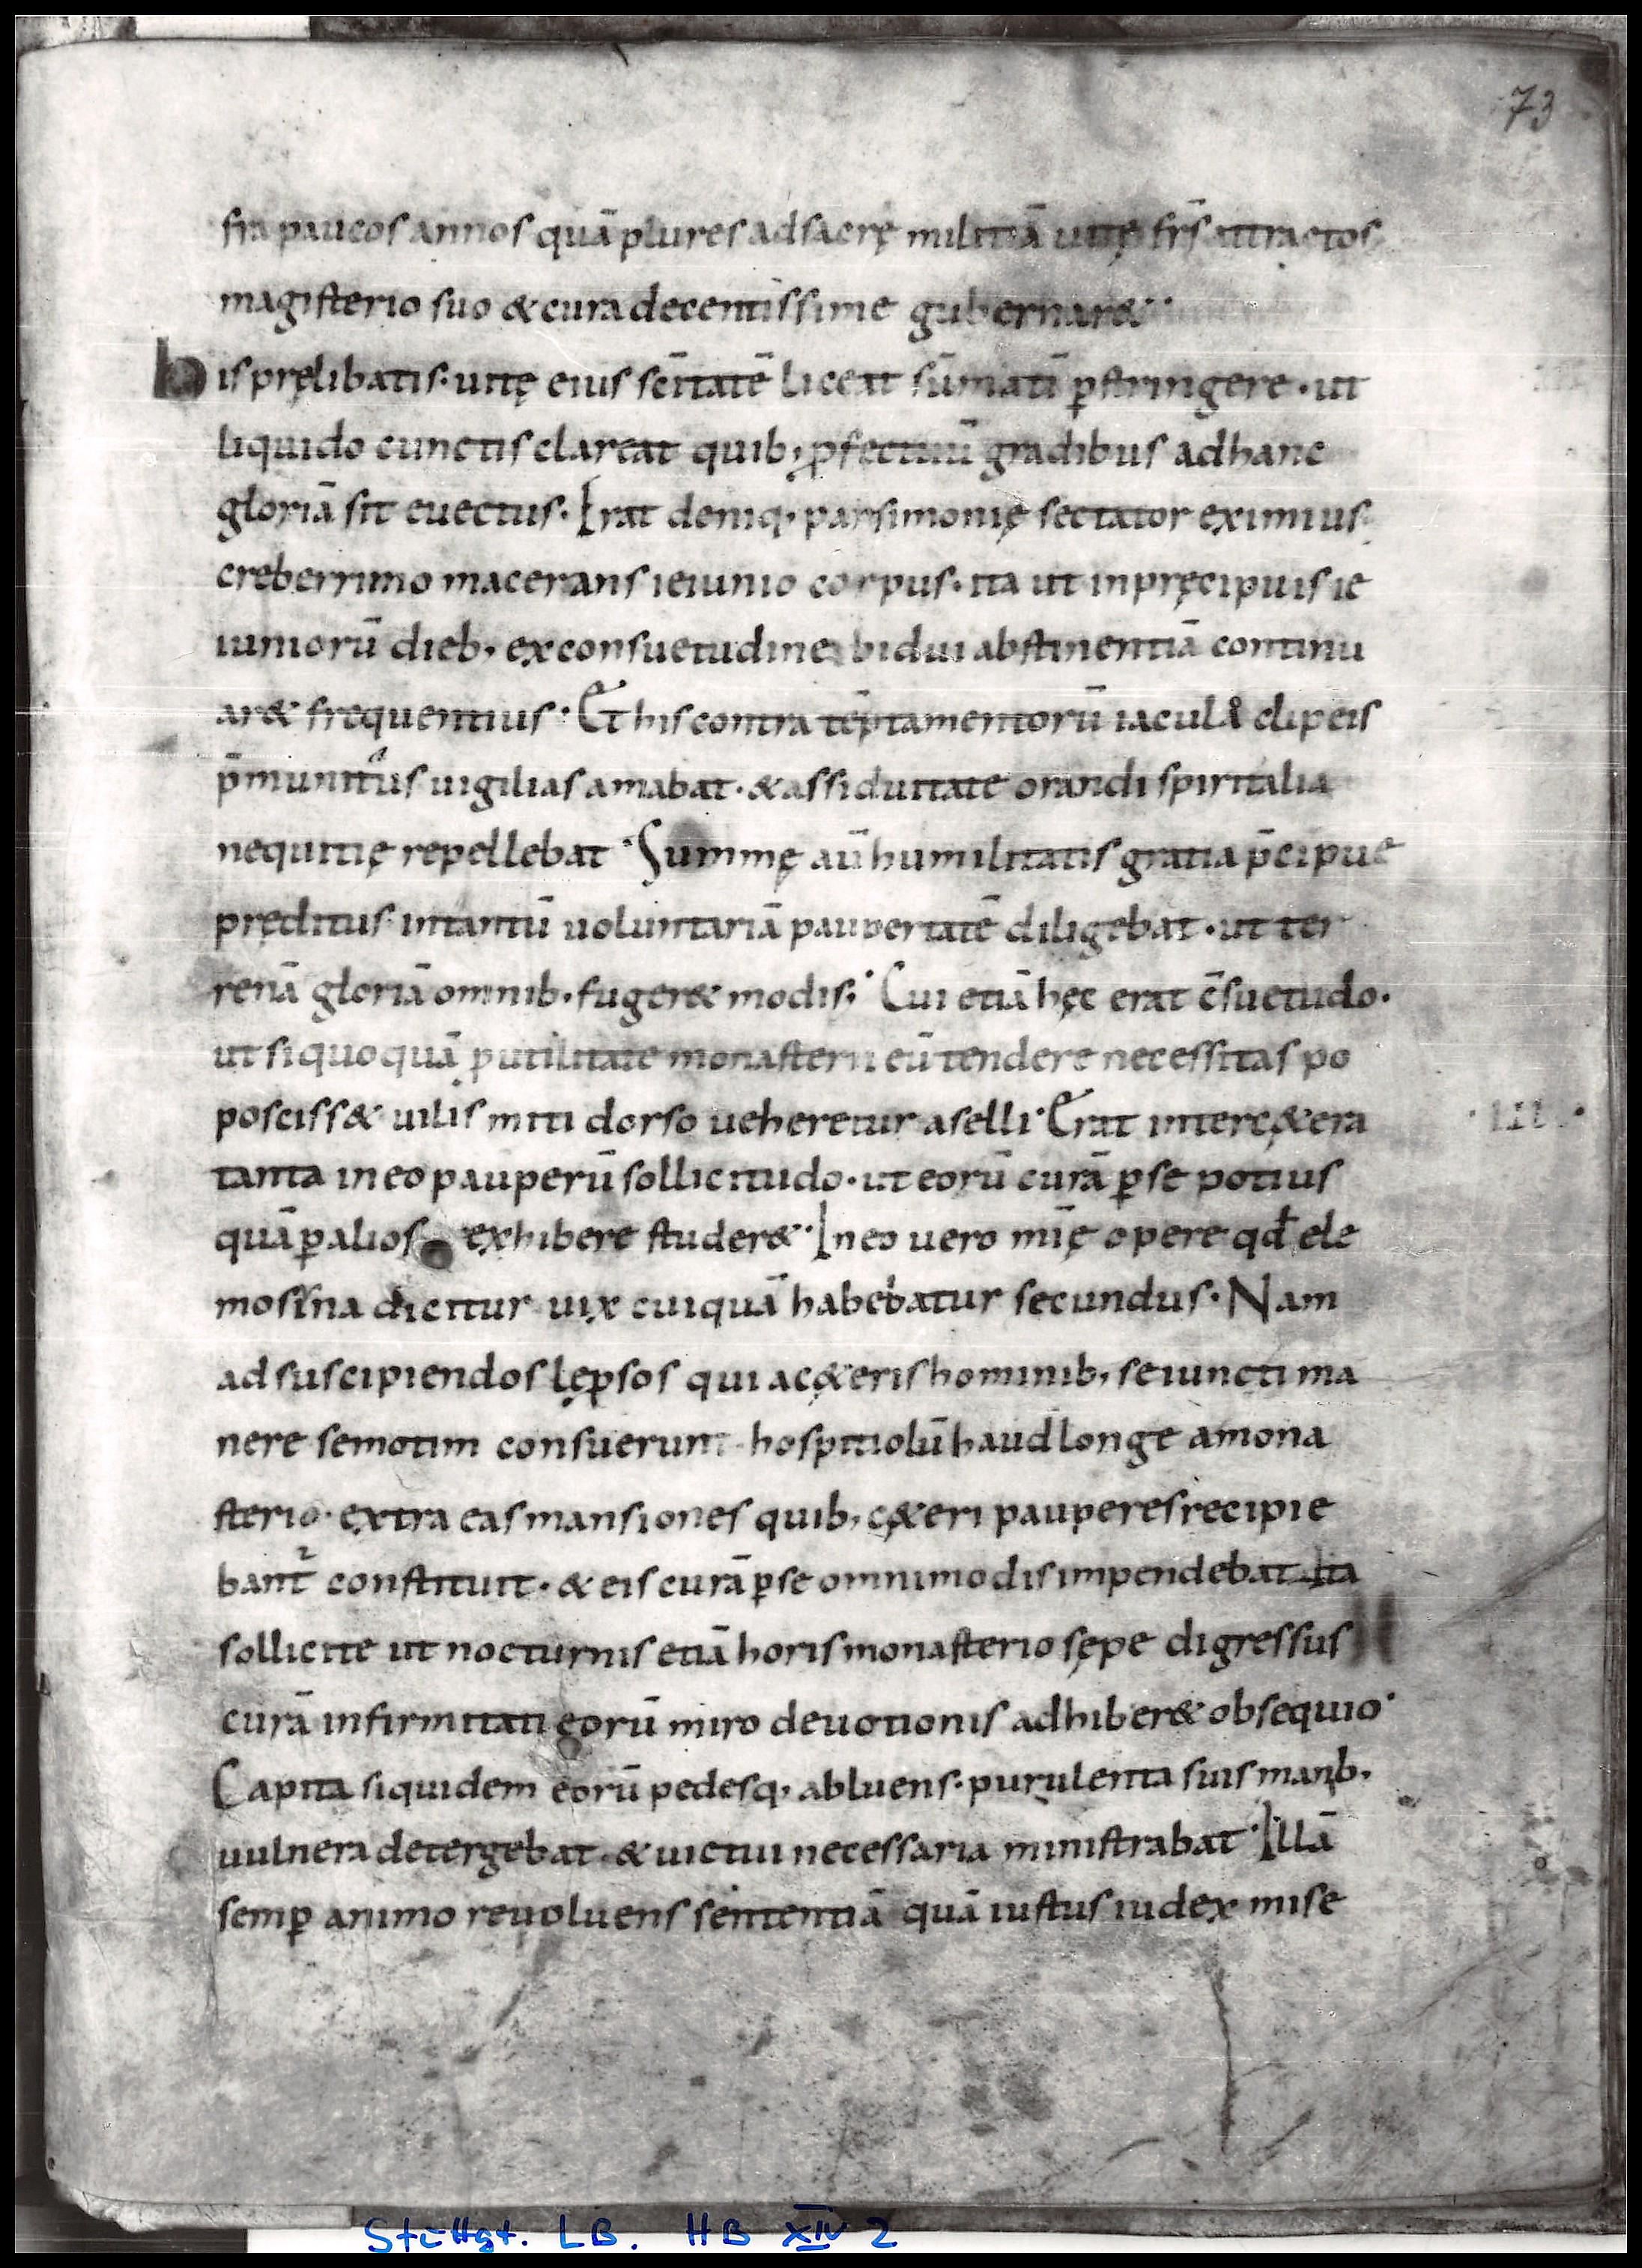 73
fra paucos annos quā plures ad sacrę militiā uitę fr̄s attractos
magisterio suo & cura decentissime gubernar&·
his pręlibatis· uitę eius sc̄itatē liceat sūmatī ꝑstringere · ut
liquido cunctis clareat quib; ꝓfectuū gradibus ad hanc
gloriā sit euectus· Erat deniq; parsimonię sectator eximius·
creberrimo macerans ieiunio corpus· ita ut in pręcipuis ie
iuniorū dieb; ex consuetudine bidui abstinentiā continu
ar& frequentius· Et his contra tēptamentorū iacula clipeis
p̄munitus uigilias amabat· & assiduitate orandi spiritalia
nequitię repellebat· Summę aū humilitatis gratia p̄cipue
pręditus· intantū uoluntariā paupertatē diligebat· ut ter
renā gloriā omnib; fuger& modis· Cui etiā hęc erat c̄suetudo·
ut si quoquā ꝓ utilitate monasterii eū tendere necessitas po
posciss& uilis miti dorso ueheretur aselli· Erat inter c&era
·III·
tanta in eo pauperū sollicitudo· ut eorū curā ꝑ se potius
quā ꝑ alios exhibere studer&· In eo uero mīę opere qđ ele
mosina dicitur uix cuiquā habebatur secundus· Nam
ad suscipiendos lęꝓsos qui a c&eris hominib; seiuncti ma
nere semotim consuerunt· hospitiolū haud longe a mona
sterio· extra eas mansiones quib; c&eri pauperes recipie
bant᷑ constituit· & eis curā ꝑ se omnimodis impendebat Ita
sollicite ut nocturnis etiā horis monasterio sępe digressus
curā infirmitati eorū miro deuotionis adhiber& obsequio·
Capita siquidem eorū pedesq; abluens· purulenta suis manib;
uulnera detergebat· & uictui necessaria ministrabat· Illā
semꝑ animo reuoluens sententiā quā iustus iudex mise
Stuttgt. LB. HB XIV 2